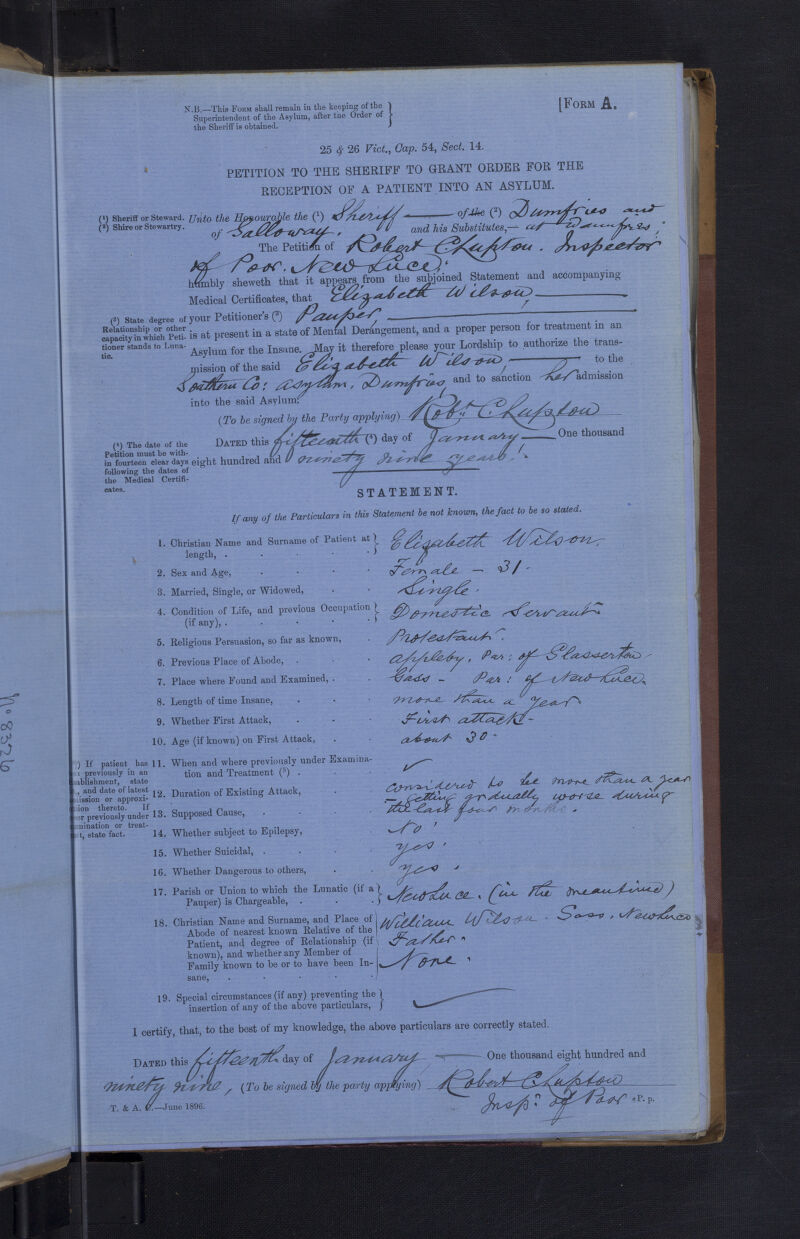 N.B.—This Form shall remain in the keeping of the
Superintendent of the Asylum, after the Order of
the Sheriff is obtained.
[Form A.
25 & 26 Vict., Cap. 54, Sect. 14.
PETITION TO THE SHERIFF TO GRANT ORDER FOR THE
RECEPTION OF A PATIENT INTO AN ASYLUM.
(1) Sheriff or Steward.
(2) Shire or Stewartry.
Unto the Honourable the (1) Sheriff — of the (2) Dumfries and
of Galloway. and his Substitutes,— at Dumfries;
The Petition of Robert C. Lupton. Inspector
of Poor. New Luce;
humbly sheweth that it appears from the subjoined Statement and accompanying
Medical Certificates, that Elizabeth Wilson, —
(3) State degree of
Relationship or other
capacity in which Peti-
tioner stands to Luna-
tic.
your Petitioner's (3) Pauper, —
is at present in a state of Mental Derangement, and a proper person for treatment in an
Asylum for the Insane. May it therefore please your Lordship to authorize the trans-
mission of the said Elizabeth Wilson, — to the
Southern Co: Asylum, Dumfries, and to sanction her admission
into the said Asylum.
(To be signed by the Party applying) Robt. C. Lupton
(4) The date of the
Petition must be with-
in fourteen clear days
following the dates of
the Medical Certifi-
cates.
Dated this fifteenth (4) day of January — One thousand
eight hundred and ninety nine years.
STATEMENT.
If any of the Particulars in this Statement be not known, the fact to be so stated.
1. Christian Name and Surname of Patient at length, . Elizabeth Wilson.
2. Sex and Age, Female – 31.
3. Married, Single, or Widowed, Single.
4. Condition of Life, and previous Occupation (if any), . Domestic Servant
5. Religious Persuasion, so far as known, Protestant.
6. Previous Place of Abode, . Appleby. Par: of Glasserton
7. Place where Found and Examined, . Gass – Par: of New Luce.
8. Length of time Insane, more than a year
9. Whether First Attack, First attack –
10. Age (if known) on First Attack, about 30 –
(5) If patient has
previously in an
Establishment, state
and date of latest
admission or approxi-
mation thereto. If
never previously under
examination or treat-
ment, state fact.
11. When and where previously under Examina-
tion and Treatment (5) . ✓
12. Duration of Existing Attack, considered to be more than a year
– getting gradually worse during
13. Supposed Cause, the last four months.
14. Whether subject to Epilepsy, No
15. Whether Suicidal, . yes.
16. Whether Dangerous to others, yes.
17. Parish or Union to which the Lunatic (if a
Pauper) is Chargeable, . New Luce. (in the meantime)
18. Christian Name and Surname, and Place of
Abode of nearest known Relative of the
Patient, and degree of Relationship (if
known), and whether any Member of
Family known to be or to have been In-
sane,
William Wilson. Gass. New Luce
Father.
None.
19. Special circumstances (if any) preventing the
insertion of any of the above particulars,
I certify, that, to the best of my knowledge, the above particulars are correctly stated.
Dated this fifteenth day of January — One thousand eight hundred and
ninety nine, (To be signed by the party applying) Robert C. Lupton
Inspr. of Poor
P. p.
T. & A. C.—June 1896.
No 8326